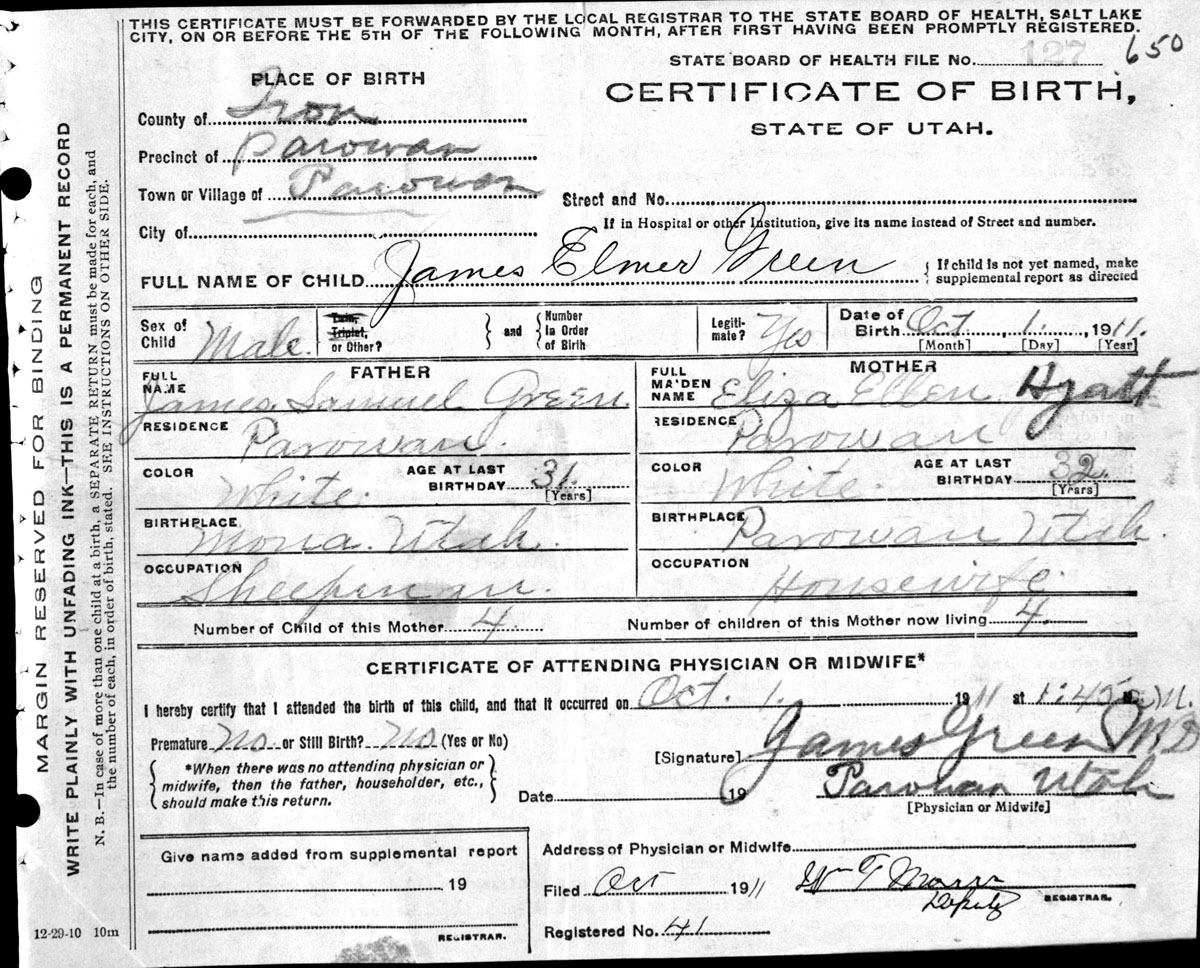 THIS CERTIFICATE MUST BE FORWARDED BY THE LOCAL REGISTRAR TO THE STATE BOARD OF HEALTH, SALT LAKE
CITY, ON OR BEFORE THE 5TH OF THE FOLLOWING MONTH, AFTER FIRST HAVING BEEN PROMPTLY REGISTERED.
STATE BOARD OF HEALTH FILE No. 127 650
PLACE OF BIRTH
CERTIFICATE OF BIRTH,
STATE OF UTAH.
County of Iron
Precinct of Parowan
Town or Village of Parowan
Street and No.
If in Hospital or other Institution, give its name instead of Street and number.
City of
FULL NAME OF CHILD James Elmer Green { If child is not yet named, make
supplemental report as directed
Sex of Child Male
Twin, Triplet, or Other? } and { Number In Order of Birth
Legiti-mate? Yes
Date of Birth Oct. 1. 1911.
[Month] [Day] [Year]
FATHER
FULL NAME James Samuel Green
RESIDENCE Parowan.
COLOR White. AGE AT LAST BIRTHDAY 31. [Years]
BIRTHPLACE Mona Utah.
OCCUPATION Sheepman.
MOTHER
FULL MAIDEN NAME Eliza Ellen Hyatt
RESIDENCE Parowan
COLOR White. AGE AT LAST BIRTHDAY 32. [Years]
BIRTHPLACE Parowan Utah.
OCCUPATION Housewife.
Number of Child of this Mother 4. Number of children of this Mother now living 4.
CERTIFICATE OF ATTENDING PHYSICIAN OR MIDWIFE*
I hereby certify that I attended the birth of this child, and that it occurred on Oct. 1. 1911 at 1:45 M.
Premature No or Still Birth? No (Yes or No)
*When there was no attending physician or
midwife, then the father, householder, etc.,
should make this return.
[Signature] James Green MD
Date 19
Parowan Utah
[Physician or Midwife]
Give name added from supplemental report
19
REGISTRAR.
Address of Physician or Midwife
Filed Oct 1911 Wm T
Deputy REGISTRAR.
Registered No. 41
12-29-10 10m
MARGIN RESERVED FOR BINDING
WRITE PLAINLY WITH UNFADING INK—THIS IS A PERMANENT RECORD
N. B.—In case of more than one child at a birth, a SEPARATE RETURN must be made for each, and
the number of each, in order of birth, stated. SEE INSTRUCTIONS ON OTHER SIDE.